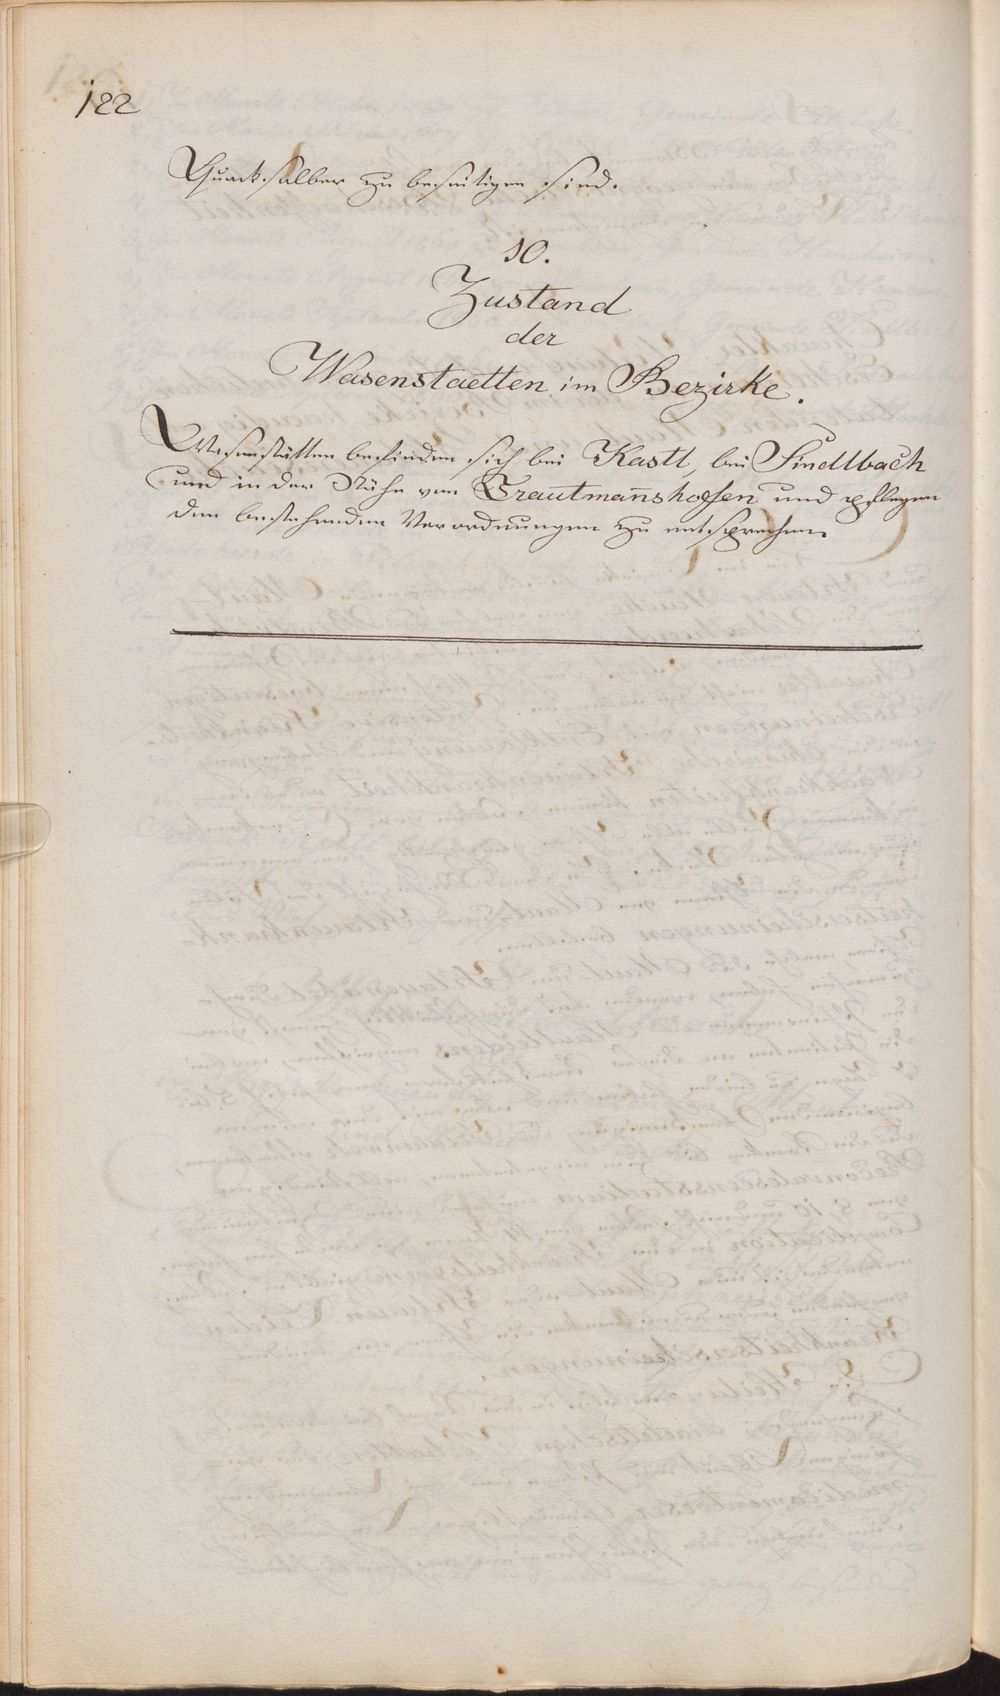 122
Quacksalber zu beseitigen sind.
10.
Zustand
der
Wasenstaetten im Bezirke.
Wasenstätten befinden sich bei Kastl, bei Sindlbach
und in der Nähe von Trautmannshofen und pflegen
den bestehenden Verordnungen zu entsprechen.